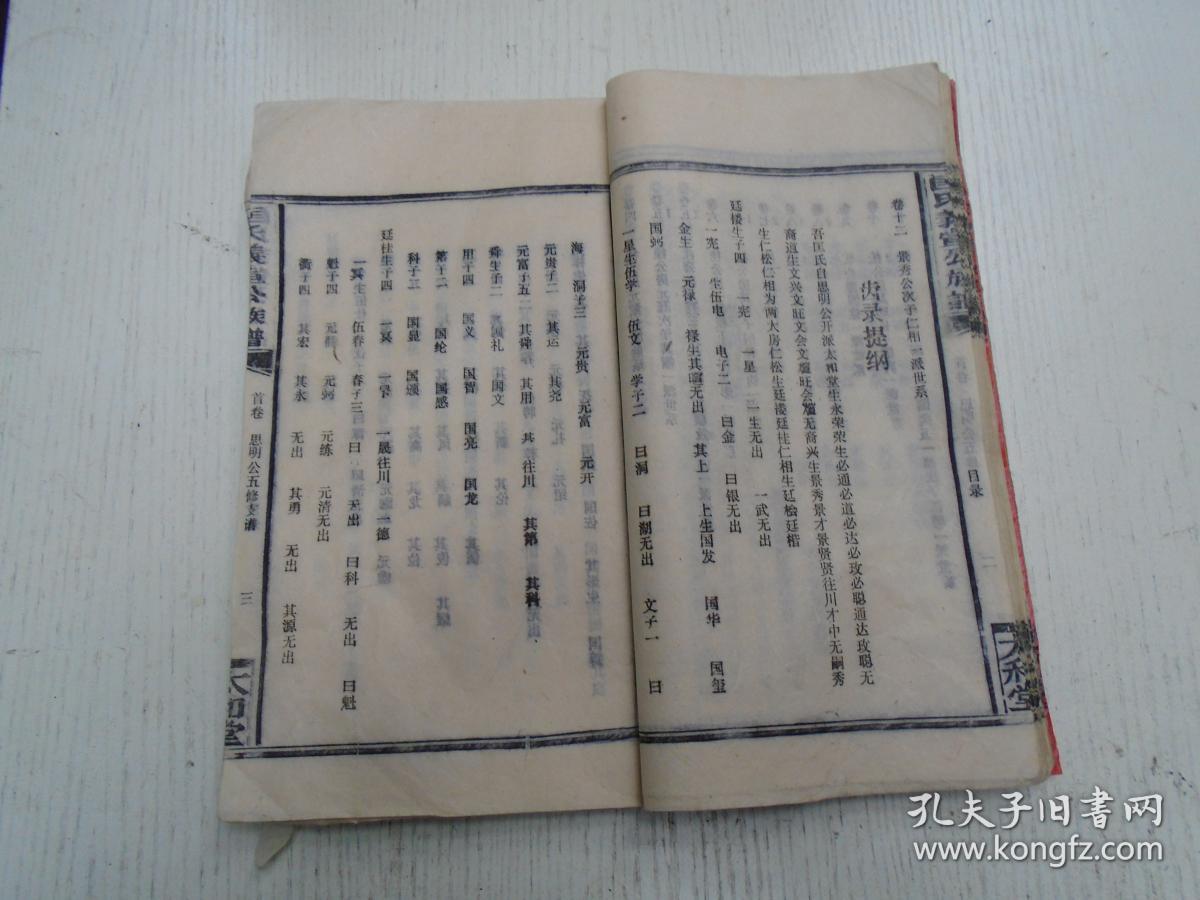 目录
二
太和堂
卷十二 景秀公次子仁相一派世系
齿录提纲
吾匡氏自思明公开派太和堂生永荣荣生必通必道必达必玫必聪通达玫聪无
裔道生文兴文旺文会文 旺会 无裔兴生景秀景才景贤贤往川才中无嗣秀
生仁松仁相为两大房仁松生廷楼廷桂仁相生廷桧廷楷
廷楼生子四 一宪 一星 一生无出 一武无出
一宪 生伍电 电子二 曰金 曰银无出
金生 元禄 禄生其 无出 其上 上生国发 国华 国玺
国
一星生伍学 伍文 学子二 曰洞 曰湖无出 文子一 曰
海 洞子三 元贵 元富 元开
元贵子二 其运 其尧
元富子五 其舜 其用 其 往川 其第 其科无出
舜生子二 国礼 国文
用子四 国义 国智 国亮 国龙
第子二 国纶 国感
科子二 国显 国颂
廷桂生子四 一冥 一 一晟往川 一德
一冥生 伍春 春子三 曰 无出 曰科 无出 曰魁
魁子四 元 元 元练 元清无出
子四 其宏 其永 无出 其勇 无出 其源无出
氏义堂公族谱
首卷 思明公五修支谱
三
太和堂
孔夫子旧书网
www.kongfz.com